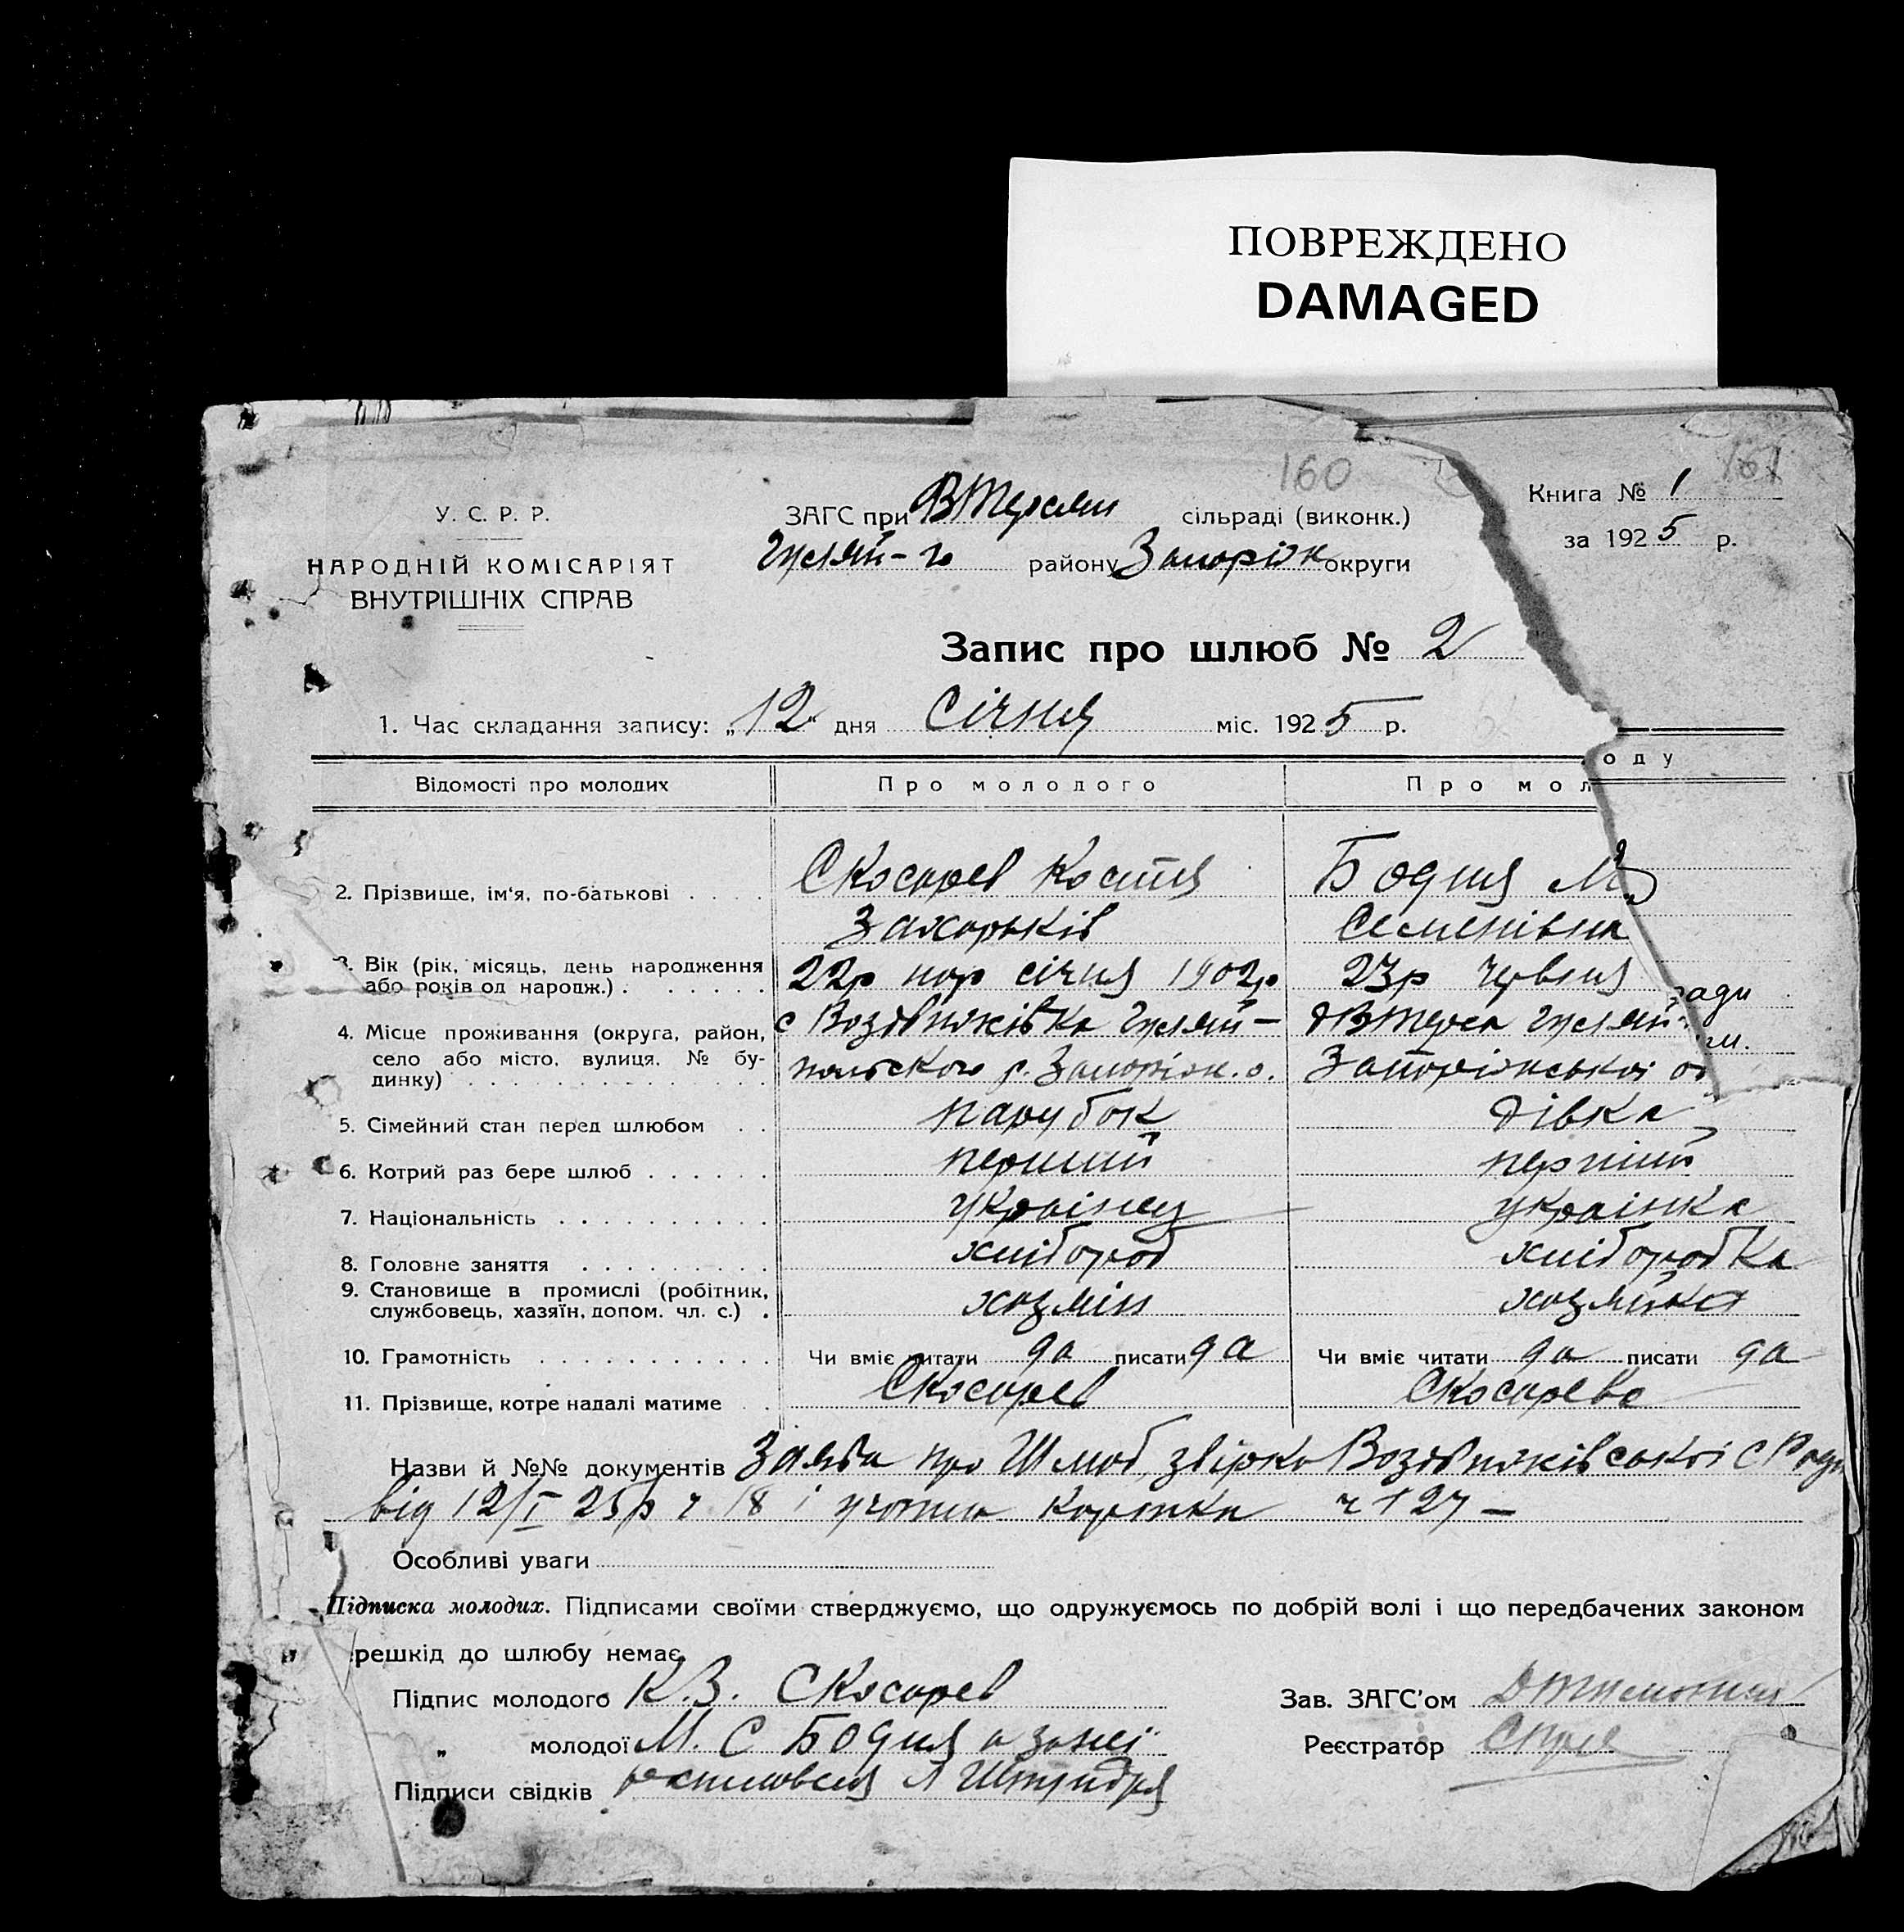 ПОВРЕЖДЕНО
DAMAGED
160
161
У. С. Р. Р.
НАРОДНІЙ КОМІСАРІЯТ
ВНУТРІШНІХ СПРАВ
ЗАГС при ВТерсян сільраді (виконк.)
Гуляй-го району Запоріж округи
Книга № 1
за 1925 р.
Запис про шлюб № 2
1. Час складання запису: „12“ дня Січня міс. 1925 р.
Відомості про молодих Про молодого Про мол оду
2. Прізвище, ім‘я, по-батькові . . . . Скосарев Костя Бодня М
Захарьків Семенівна
3. Вік (рік, місяць, день народження або років од народж.) . . . . . . 22р нар січня 1902р 23р червня
ради
4. Місце проживання (округа, район, село або місто, вулиця. № будинку) . . . с Воздвижківка Гуляй- ВТерса Гуляй-
польского р. Запоріж. о. Запоріжськоі о
5. Сімейний стан перед шлюбом . . парубок дівка
6. Котрий раз бере шлюб . . . . . . перший перший
7. Національність . . . . . . . . . українец українка
8. Головне заняття . . . . . . . . хлібороб хліборобка
9. Становище в промислі (робітник, службовець, хазяїн, допом. чл. с.) . хозяін хозяйка
10. Грамотність . . . . . . . . . . Чи вміє читати да писати да Чи вміє читати да писати да
11. Прізвище, котре надалі матиме . . Скосарев Скосарева
Назви й №№ документів Заява про Шлюб, звірка Воздвижківськоі С Ради
від 12/I 25р ч 18 і учотна картка ч 127 —
Особливі уваги
Підписка молодих. Підписами своїми стверджуємо, що одружуємось по добрій волі і що передбачених законом
решкід до шлюбу немає.
Підпис молодого К.З. Скосарев Зав. ЗАГС’ом
„ молодої М. С Бодня а за неї Реєстратор
Підписи свідків